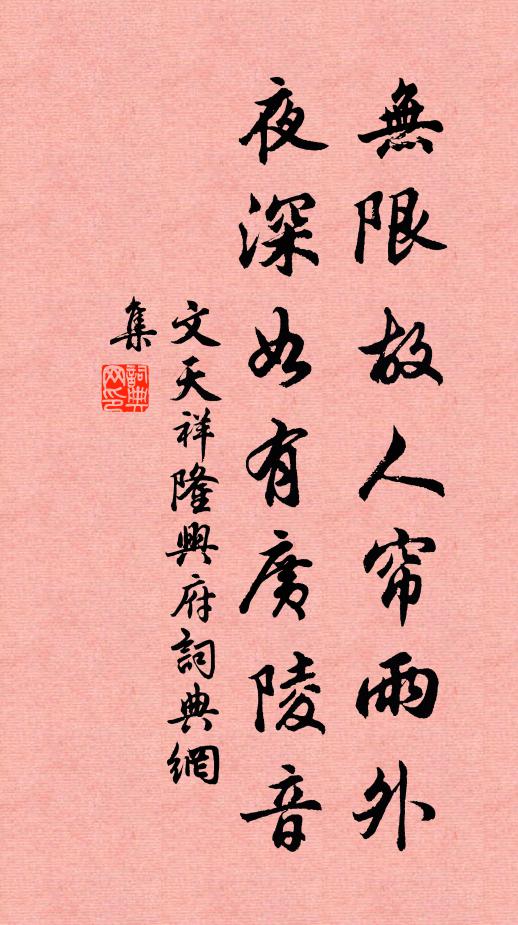 無限故人帘雨外
夜深如有廣陵音
文天祥隆興府詞典網
集
詞典
网印